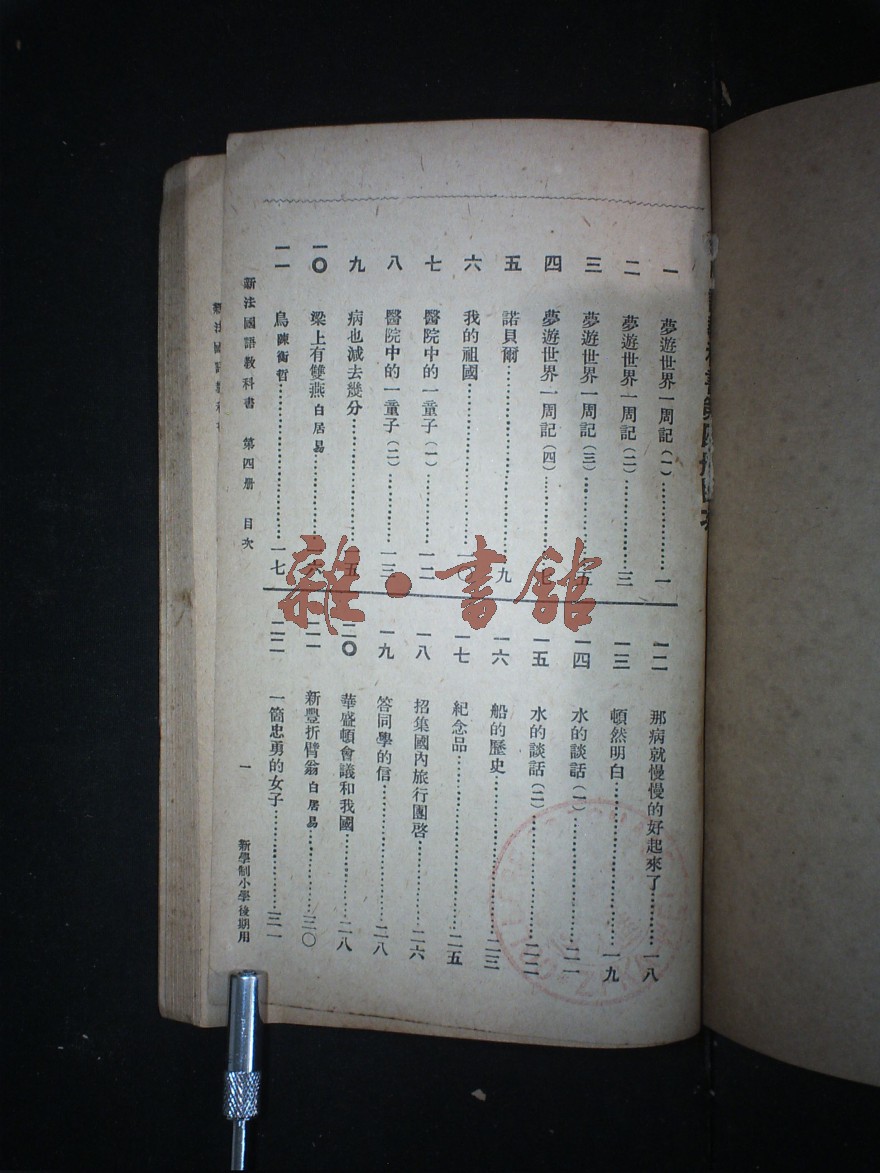 一 夢遊世界一周記(一)…………一
二 夢遊世界一周記(二)…………三
三 夢遊世界一周記(三)…………五
四 夢遊世界一周記(四)…………七
五 諾貝爾…………九
六 我的祖國…………一〇
七 醫院中的一童子(一)…………一二
八 醫院中的一童子(二)…………一三
九 病也減去幾分…………一五
一〇 梁上有雙燕 白居易…………一六
一一 鳥 陳衡哲…………一七
一二 那病就慢慢的好起來了…………一八
一三 頓然明白…………一九
一四 水的談話(一)…………二一
一五 水的談話(二)…………二二
一六 船的歷史…………二三
一七 紀念品…………二五
一八 招集國內旅行團啓…………二六
一九 答同學的信…………二八
二〇 華盛頓會議和我國…………二八
二一 新豐折臂翁 白居易…………三〇
二二 一箇忠勇的女子…………三一
新法國語教科書 第四册 目次 一 新學制小學後期用
雜·書館